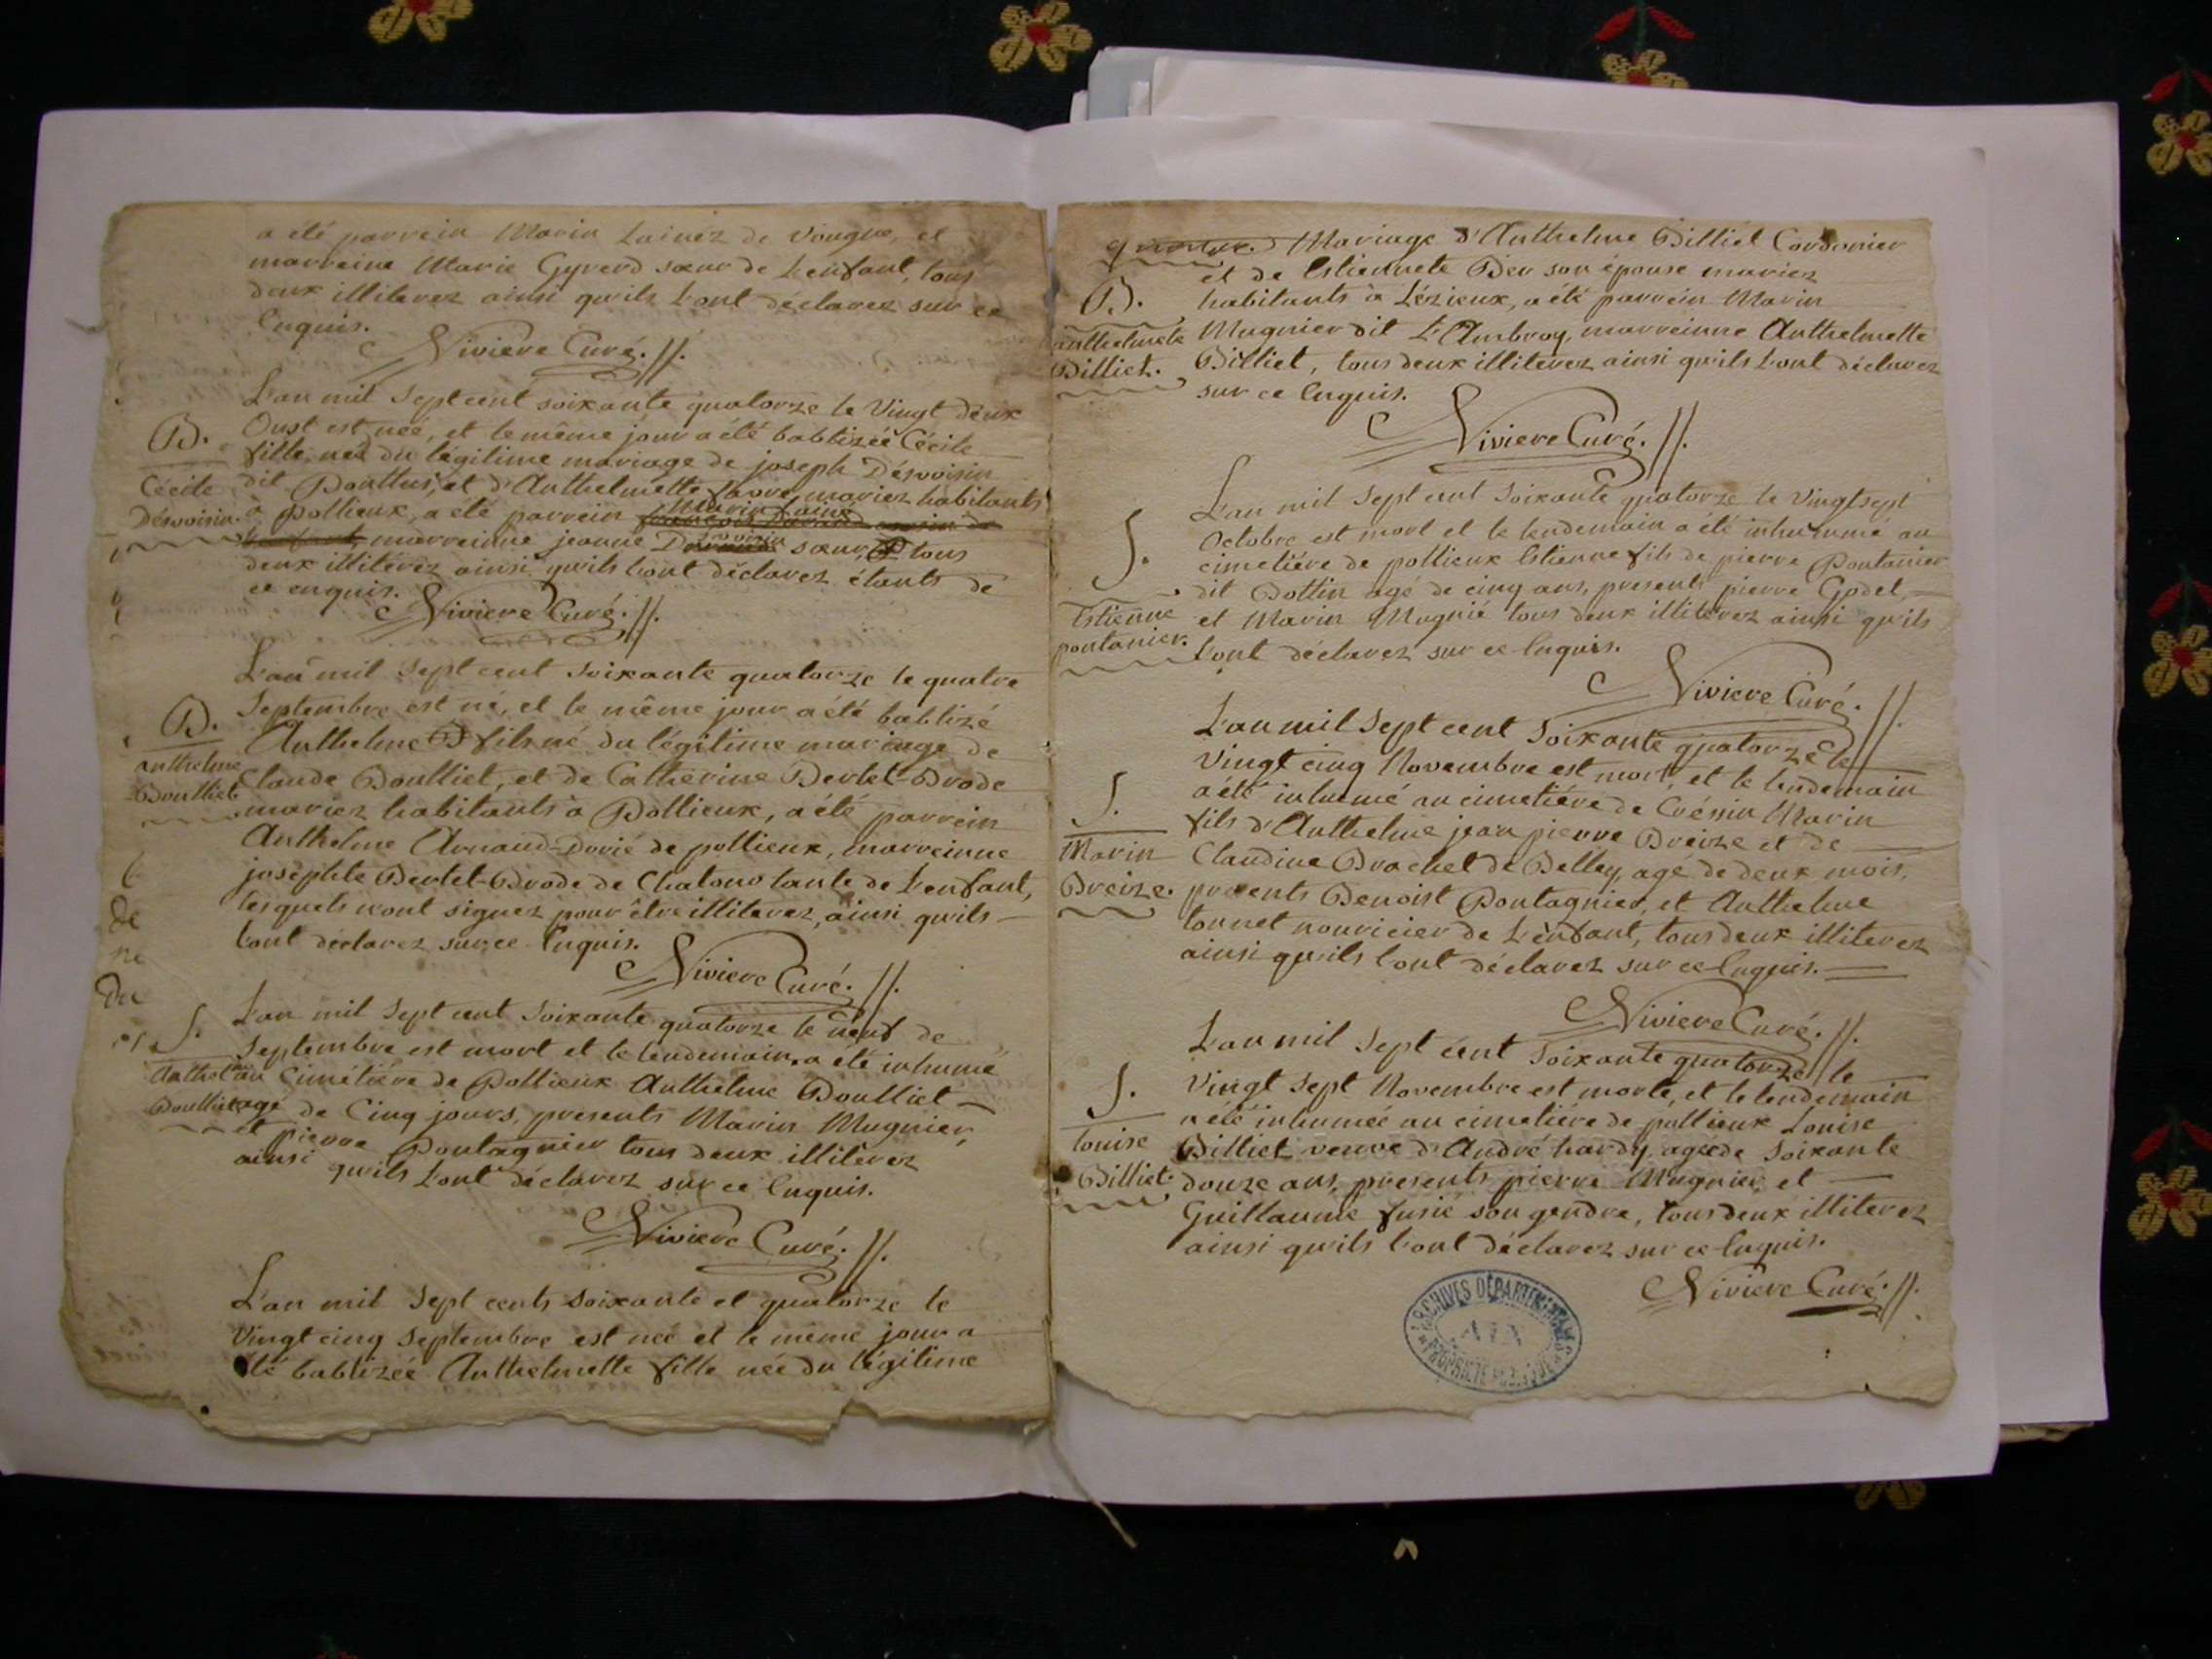 a été parrein Marin Lainez de Vongne, et
marreine Marie Gyrerd sœur de L'enfant, tous
deux illiterez ainsi qu'ils L'ont déclarez sur ce
Enquis.
Niviere Curé.//.
L'an mil Sept cent soixante quatorze le Vingt deux
Oust est née, et le même jour a été babtizéé Cécile
fille née du légitime mariage de joseph Désvoisin
dit Douttus, et d'Anthelmette favre mariez habitants
à Pollieux, a été parrein Marin Laine
marreinne jeanne Desvoisin sœur tous
deux illitérez ainsi qu'ils L'ont déclarez étants de
ce enquis.
Niviere Curé.//.
B.
Cécile
Désvoisin.
L'an mil Sept cent soixante quatorze le quatre
Septembre est né, et le même jour a été babtizé
Anthelme fils né du légitime mariage de
Claude Doulliet, et de Catherine Bertet-Brode
mariez habitants à Pollieux, a été parrein
Anthelme Arnaud-Dorié de pollieux, marreinne
joséphte Bertet-Brode de Chatono tante de L'enfant,
lesquels n'ont signez pour être illiterez, ainsi qu'ils
L'ont déclarez sur ce Enquis.
Niviere Curé.//.
B.
anthelme
Doulliet
de
ne
Du
L'an mil Sept cent Soixante quatorze le neuf de
Septembre est mort et le lendemain a été inhumé
au Cimétiére de Pollieux Anthelme Doulliet
agé de Cinq jours, presents Marin Mugnier,
et pierre Poutagnier tous deux illiterez
ainsi qu'ils L'ont déclarez sur ce Enquis.
Niviere Curé.//.
S.
Anthel
Doulliet
L'an mil Sept cents Soixante et quatorze le
Vingt cinq Septembre est neé et le même jour a
été babtizéé Anthelmette fille née du légitime
Mariage d'Anthelme Billiet Cordonier
et de Estiennete Bey son épouse mariez
habitants à Lézieux, a été parrein Marin
Mugnier dit L'Ambroy, marreinne Anthelmette
Billiet, tous deux illiterez ainsi qu'ils L'ont déclarez
sur ce Enquis.
Niviere Curé.//.
B.
anthelmete
Billiet.
L'an mil Sept cent Soixante quatorze le Vingtsept
Octobre est mort et le lendemain a été inhummé au
cimetiére de pollieux Estienne fils de pierre Poutanier
dit Dottin agé de cinq ans, presents pierre Godet,
et Marin Mugnié tous deux illiterez ainsi qu'ils
L'ont déclarez sur ce Enquis.
Niviere Curé.//.
S.
Estienne
poutanier.
L'an mil Sept cent Soixante quatorze le
Vingt cinq Novembre est mort, et le lendemain
a été inhumé au cimetiére de Créssin Marin
fils d'Anthelme jean pierre Dreize et de
Claudine Brachet de Belley, agé de deux mois,
presents Benoist Poutagnier, et Anthelme
tournet nouricier de L'enfant, tous deux illiterez
ainsi qu'ils L'ont déclarez sur ce Enquis.
Niviere Curé.//.
S.
Marin
Dreize.
L'an mil Sept cent Soixante quatorze le
Vingt Sept Novembre est morte, et le lendemain
a été inhumeé au cimetiére de pollieux Louise
Billiet veuve d'André hardy, agéede Soixante
douze ans, presents pierre Mugnier, et
Guillaume fusié son gendre, tous deux illiterez
ainsi qu'ils L'ont déclarez sur ce Enquis.
Niviere Curé.//.
S.
Louise
Billiet.
ARCHIVES DÉPARTEMENTALES
AIN
PROPRIÉTÉ PUBLIQUE